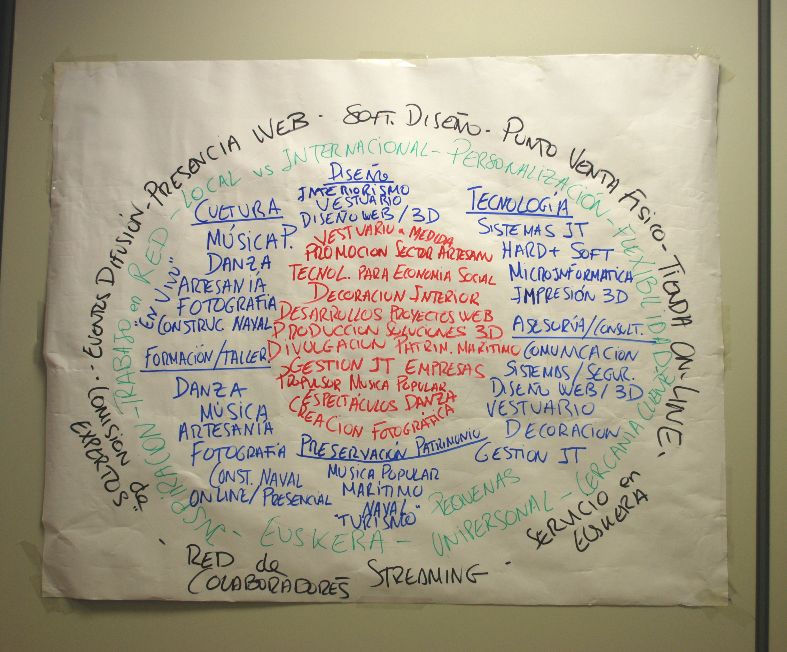 COMISION de "EXPERTOS" - EVENTOS DIFUSIÓN - PRESENCIA WEB - SOFT. DISEÑO - PUNTO VENTA FISICO - TIENDA ON-LINE.
SERVICIO en EUSKERA
STREAMING -
RED de COLABORADORES
INSPIRACION - TRABAJO en RED - LOCAL vs INTERNACIONAL - PERSONALIZACIÓN - FLEXIBILIDAD
CERCANIA CLIENTE
PEQUEÑAS
UNIPERSONAL -
EUSKERA -
DISEÑO
INTERIORISMO
VESTUARIO
DISEÑO WEB / 3D
CULTURA
MÚSICA P.
DANZA
ARTESANÍA
FOTOGRAFÍA
CONSTRUC NAVAL
"EN VIVO"
FORMACIÓN/TALLER
DANZA
MÚSICA
ARTESANÍA
FOTOGRAFÍA
CONST. NAVAL
ONLINE/PRESENCIAL
TECNOLOGIA
SISTEMAS IT
HARD + SOFT
MICROINFORMATICA
IMPRESIÓN 3D
ASESORÍA/CONSULT.
COMUNICACION
SISTEMAS/SEGUR.
DISEÑO WEB/3D
VESTUARIO
DECORACION
GESTION IT
PRESERVACIÓN PATRIMONIO
MUSICA POPULAR
MARÍTIMO
NAVAL
"TURISMO"
VESTUARIO a MEDIDA
PROMOCION SECTOR ARTESAN
TECNOL. PARA ECONOMIA SOCIAL
DECORACION INTERIOR
DESARROLLOS PROYECTOS WEB
PRODUCCION SOLUCIONES 3D
DIVULGACION PATRIM. MARITIMO
GESTION IT EMPRESAS
PROPULSOR MUSICA POPULAR
ESPECTÁCULOS DANZA
CREACION FOTOGRÁFICA